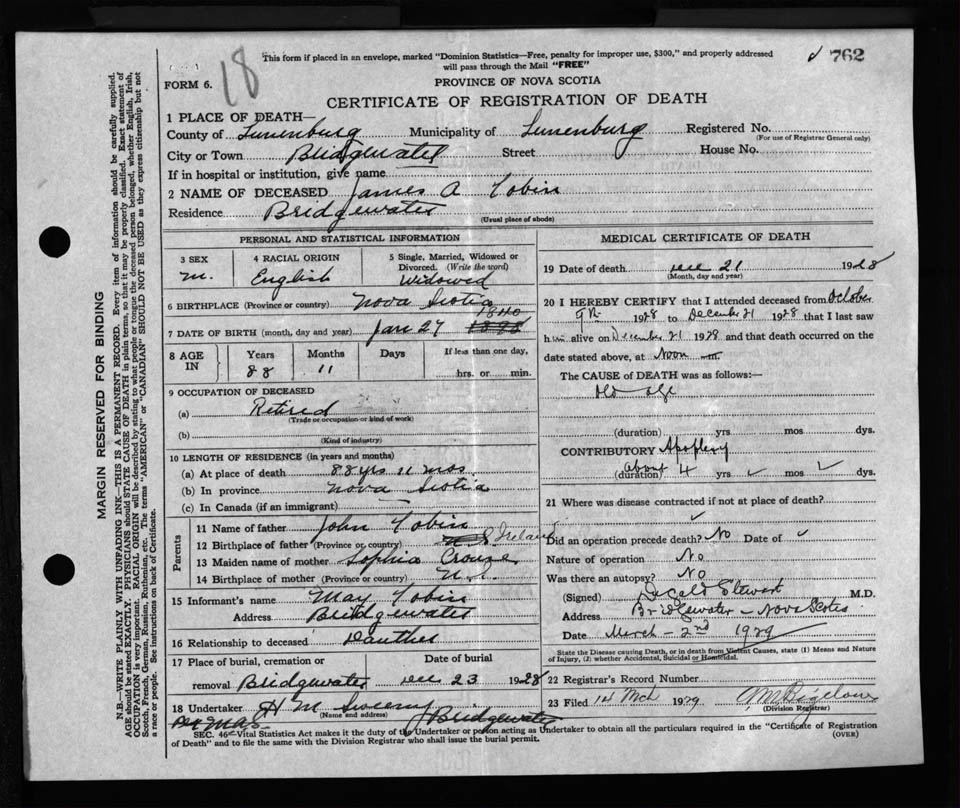 This form if placed in an envelope, marked "Dominion Statistics—Free, penalty for improper use, $300," and properly addressed
will pass through the Mail "FREE"
762
FORM 6.
18
PROVINCE OF NOVA SCOTIA
CERTIFICATE OF REGISTRATION OF DEATH
1 PLACE OF DEATH—
County of Lunenburg Municipality of Lunenburg Registered No.
(For use of Registrar General only)
City or Town Bridgewater Street House No.
If in hospital or institution, give name
2 NAME OF DECEASED James A Tobin
Residence Bridgewater
(Usual place of abode)
PERSONAL AND STATISTICAL INFORMATION
3 SEX
m.
4 RACIAL ORIGIN
English
5 Single, Married, Widowed or
Divorced. (Write the word)
Widowed
6 BIRTHPLACE (Province or country) Nova Scotia
7 DATE OF BIRTH (month, day and year) Jan 27 1840
8 AGE
IN
Years
88
Months
11
Days
If less than one day,
hrs. or min.
9 OCCUPATION OF DECEASED
(a) Retired
(Trade or occupation or kind of work)
(b)
(Kind of industry)
10 LENGTH OF RESIDENCE (in years and months)
(a) At place of death 88 yrs 11 mos.
(b) In province Nova Scotia
(c) In Canada (if an immigrant)
Parents
11 Name of father John Tobin
12 Birthplace of father (Province or country) N S Ireland
13 Maiden name of mother Sophia Crouse
14 Birthplace of mother (Province or country) N.S.
15 Informant's name May Tobin
Bridgewater
16 Relationship to deceased Dauther
17 Place of burial, cremation or
removal Bridgewater
Date of burial
Dec 23 1928
18 Undertaker H M Sweeny
(Name and address)
Bridgewater
MEDICAL CERTIFICATE OF DEATH
19 Date of death Dec 21 1928
(Month, day and year)
20 I HEREBY CERTIFY that I attended deceased from October
1928 to December 21 1928 that I last saw
him alive on December 21 1928 and that death occurred on the
date stated above, at Noon m.
The CAUSE of DEATH was as follows:—
Old age
(duration) yrs mos dys.
CONTRIBUTORY Apoplexy
(duration) about 4 yrs mos dys.
21 Where was disease contracted if not at place of death?
Did an operation precede death? No Date of
Nature of operation No
Was there an autopsy? No
(Signed) Dugald Stewart M.D.
Address Bridgewater – Nova Scotia
Date March – 2nd 1929
State the Disease causing Death, or in death from Violent Causes, state (1) Means and Nature
of Injury, (2) whether Accidental, Suicidal or Homicidal.
22 Registrar's Record Number
23 Filed 14 Mch 1929
(Division Registrar)
SEC. 46—Vital Statistics Act makes it the duty of the Undertaker or person acting as Undertaker to obtain all the particulars required in the "Certificate of Registration
of Death" and to file the same with the Division Registrar who shall issue the burial permit.
(OVER)
MARGIN RESERVED FOR BINDING
N.B.—WRITE PLAINLY WITH UNFADING INK—THIS IS A PERMANENT RECORD. Every item of information should be carefully supplied.
AGE should be stated EXACTLY. PHYSICIANS should STATE CAUSE OF DEATH in plain terms, so that it may be properly classified. Exact statement of
OCCUPATION is very important. RACIAL ORIGIN will be described by stating to what people or tongue the deceased person belonged, whether English, Irish,
Scotch, French, German, Russian, Ruthenian, etc. The terms "AMERICAN" or "CANADIAN" SHOULD NOT BE USED as they express citizenship but not
a race or people. See instructions on back of Certificate.